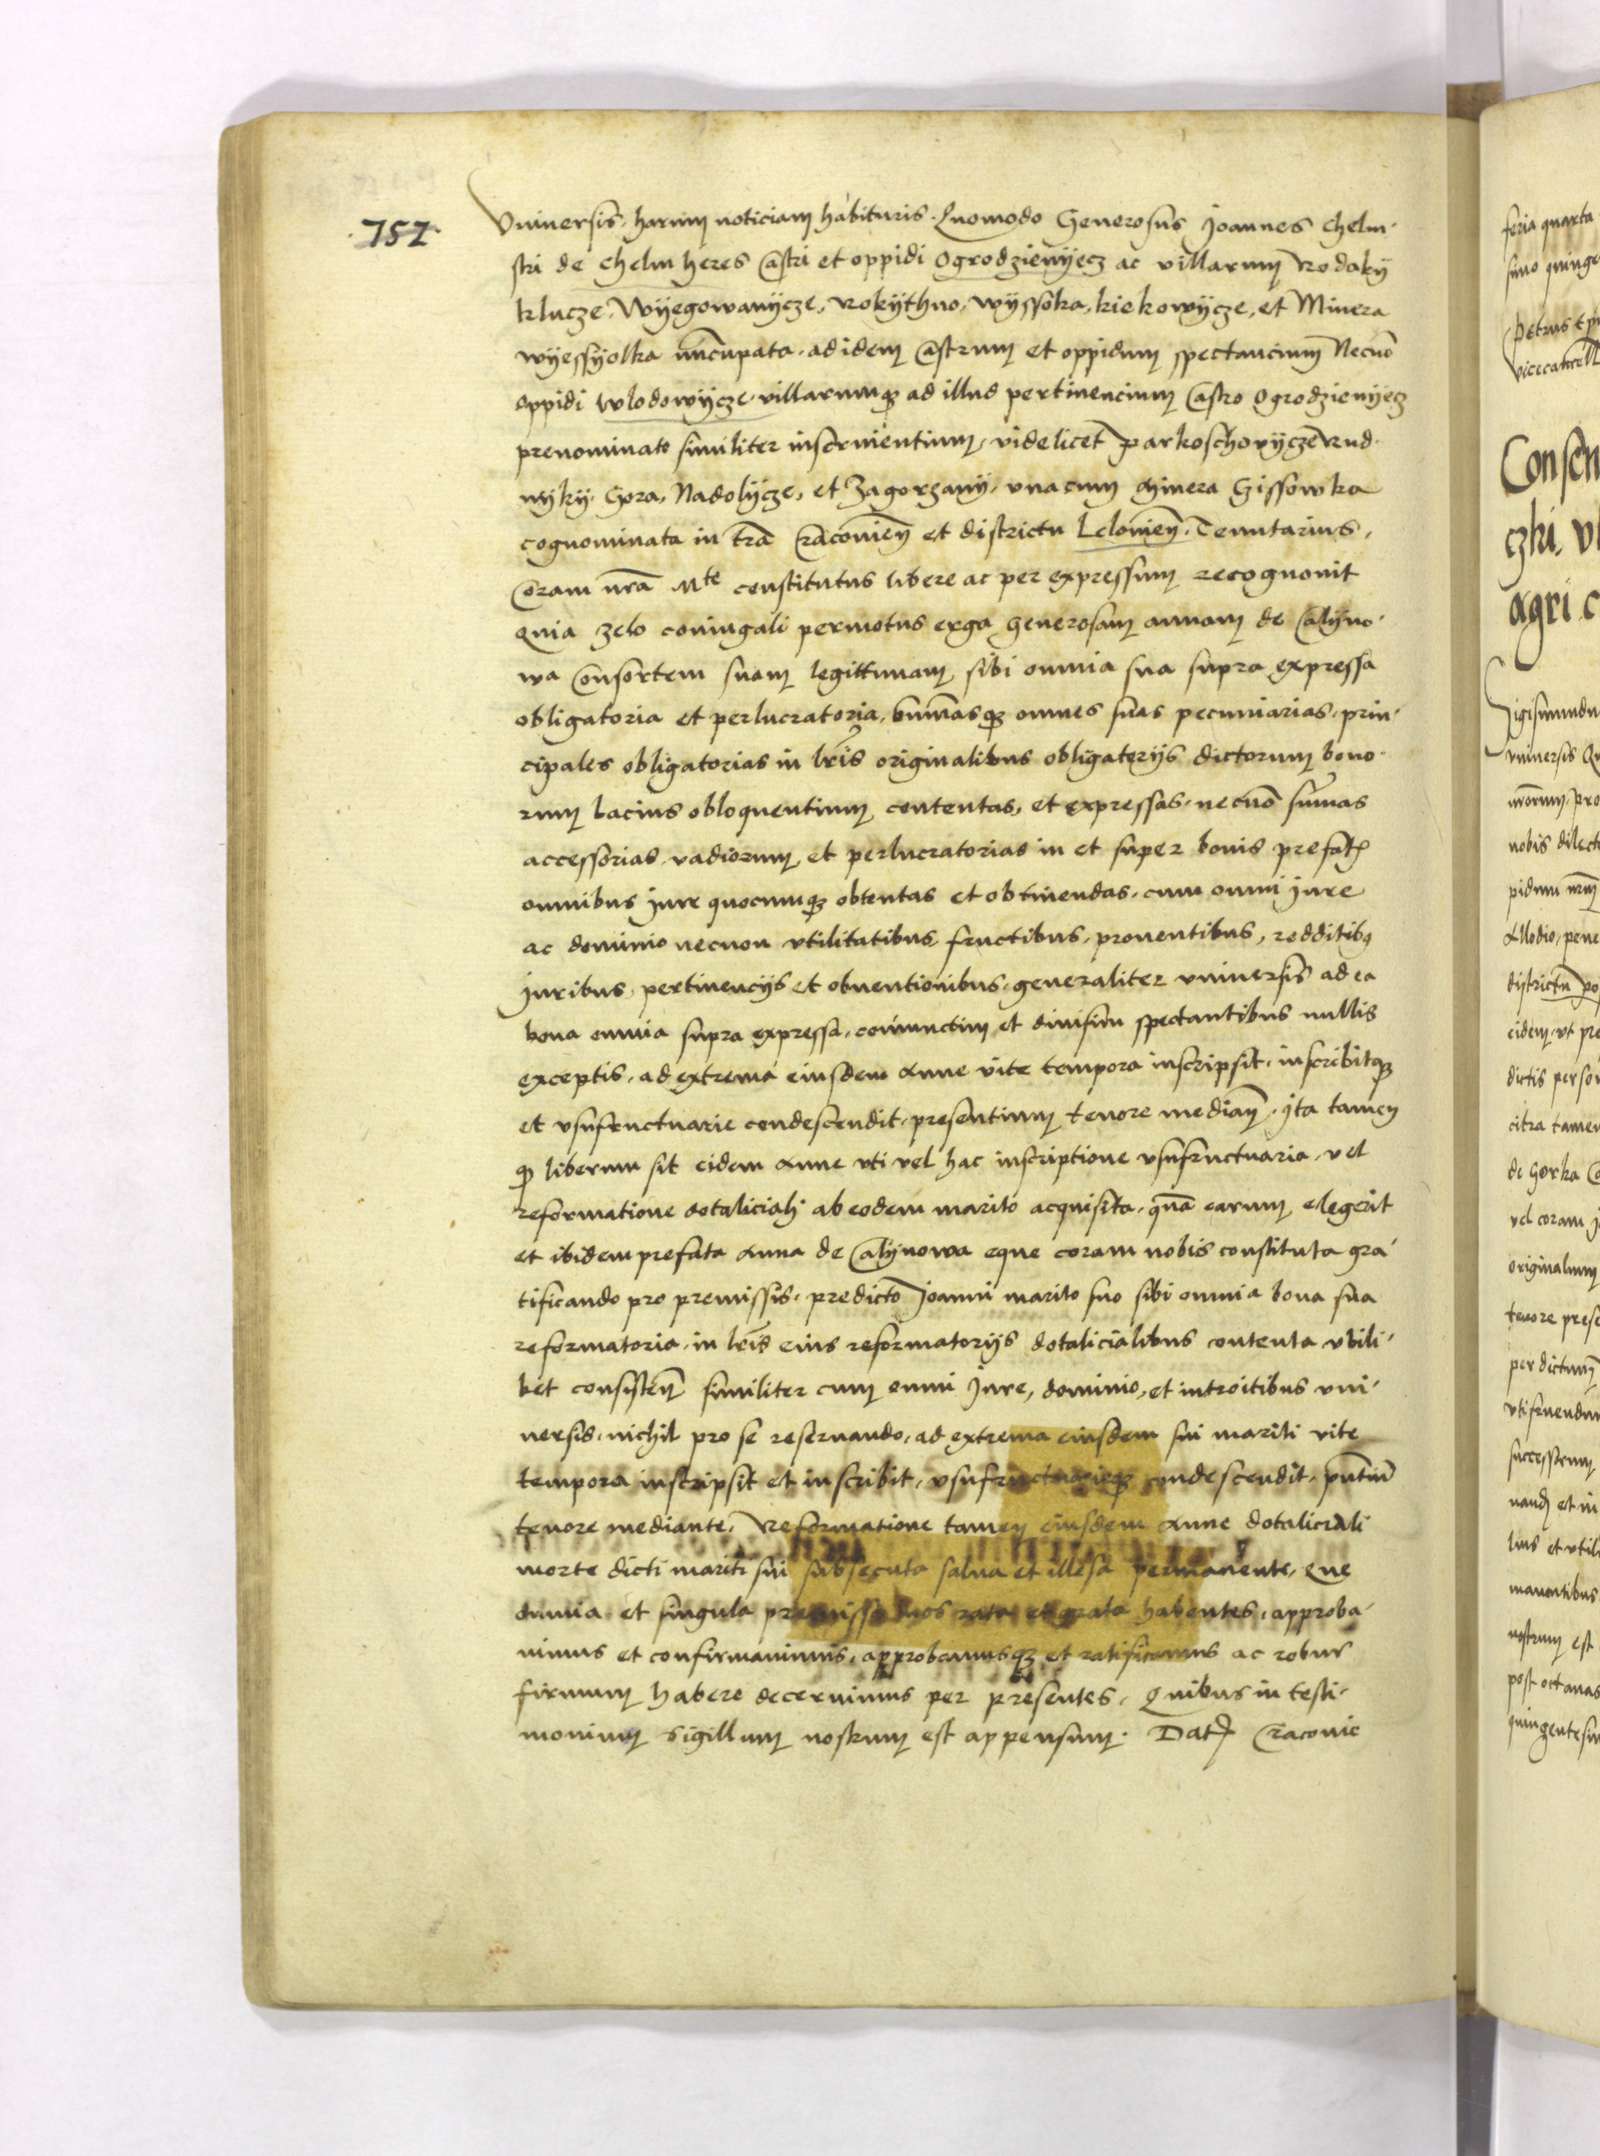 ·752·
Vniuersis harum noticiam habituris. Quomodo Generosus Joannes Chelm-
ski de Chelm heres Castri et oppidi Ogrodzienyecz ac villarum Rodaky
klucze, Wyegowanycze, Rokythno, Wyssoka, kiekowycze, et Minera
wyessyolka nuncupata, ad idem Castrum et oppidum spectancium Necno
oppidi Wlodowycze, villarumq ad illud pertinencium Castro Ogrodzienyecz
prenominato similiter inseruientium, videlicet Parkoschovycze Rud-
nyky, Gora, Nadolycze, et Zagorzany, vna cum Minera Gissowka
cognominata in tra Cracovien et districtu Lelovien, Tenutarius,
Coram nra Mte constitutus libere ac per expressum recognouit
Quia zelo coniugali permotus erga Generosam annam de Calyno-
wa Consortem suam legittimam, sibi omnia sua supra expressa
obligatoria et perlucratoria, summasq omnes suas pecuniarias, prin-
cipales obligatorias in lris originalibus obligatoryis dictorum bono-
rum lacius obloquentium contentas, et expressas, necno sumas
accessorias vadiorum et perlucratorias in et super bonis prefat
omnibus jure quocumq obtentas et obtinendas, cum omni jure
ac dominio necnon vtilitatibus, fructibus, prouentibus, redditibq
juribus, pertinencijs et obuentionibus, generaliter vniuersis ad ea
bona omnia supra expressa, coniunctim et diuisim spectantibus nullis
exceptis, ad extrema eiusdem Anne vite tempora inscripsit, inscribitq
et vsufructuarie condescendit, presentium tenore median, ita tamen
q liberum sit eidem Anne vti vel hac inscriptione vsufructuaria, vel
reformatione dotaliciali ab eodem marito acquisita, qua earum elegerit
et ibidem prefata Anna de Calynowa eque coram nobis constituta gra-
tificando pro premissis, predicto Joanni marito suo sibi omnia bona sua
reformatoria, in lris eius reformatoryis dotalicialibus contenta vbili-
bet consisten similiter cum omni Jure, dominio, et introitibus vni-
uersis, nichil pro se reseruando, ad extrema eiusdem sui mariti vite
tempora inscripsit et inscribit, vsufructuarieq condescendit, pntiu
tenore mediante, Reformatione tamen eiusdem Anne dotaliciali
morte dicti mariti sui subsecuta salua et illesa permanente, Que
omnia et singula premissa nos rata et grata habentes, approba-
uimus et confirmauimus, approbamusq et ratificamus ac robur
firmum habere decernimus per presentes, Quibus in testi-
monium sigillum nostrum est appensum. Dat Cracovie
feria quarta
simo quinge
Petrus
vicecancell
Consen
czki, v
agri c
Sigismundu
vniuersis Qu
pro
nobis dilect
pidum nrm
Allodio, pene
districtu po
eidem, vt pre
dictis perso
citra tamen
de Gorka C
vel coram j
originalium
tenore prese
per dictum
vtifruendu
successorum
nand et in
lius et vtili
manentibus
nostrum est
post octauas
quingentesim